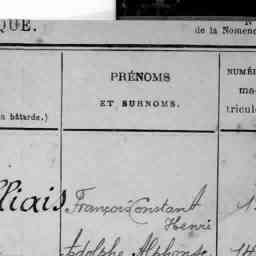 QUE.
N
de la Nomenc
PRÉNOMS
ET SURNOMS.
NUMÉR
ma-
tricule
n bâtarde.)
lliais
François Constant
Henri
Adolphe Alphonse